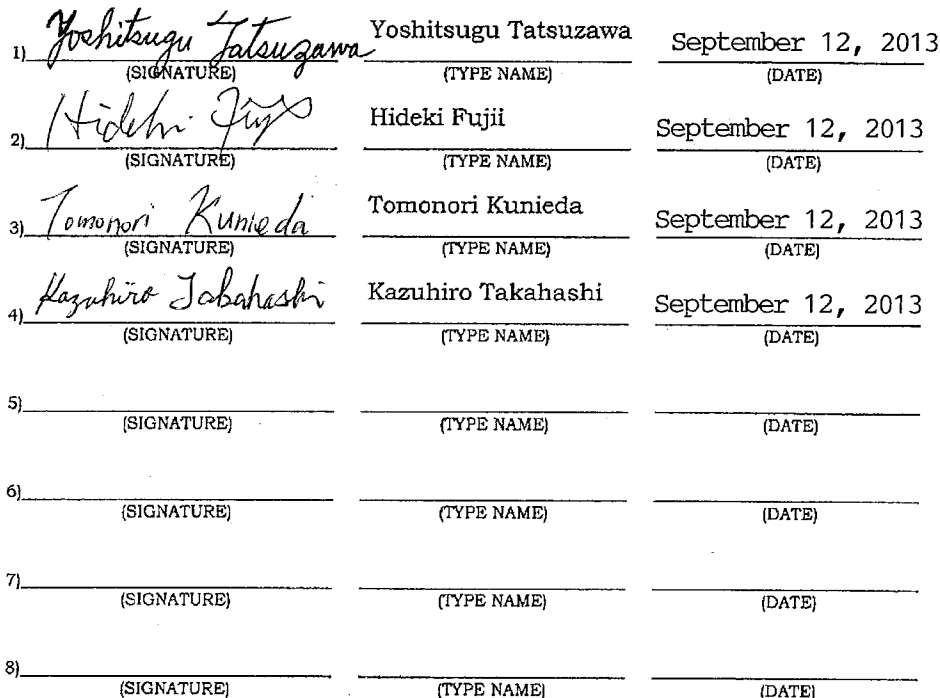 1) Yoshitsugu Tatsuzawa Yoshitsugu Tatsuzawa September 12, 2013
(SIGNATURE) (TYPE NAME) (DATE)
2) Hideki Fujii Hideki Fujii September 12, 2013
(SIGNATURE) (TYPE NAME) (DATE)
3) Tomonori Kunieda Tomonori Kunieda September 12, 2013
(SIGNATURE) (TYPE NAME) (DATE)
4) Kazuhiro Takahashi Kazuhiro Takahashi September 12, 2013
(SIGNATURE) (TYPE NAME) (DATE)
5)
(SIGNATURE) (TYPE NAME) (DATE)
6)
(SIGNATURE) (TYPE NAME) (DATE)
7)
(SIGNATURE) (TYPE NAME) (DATE)
8)
(SIGNATURE) (TYPE NAME) (DATE)